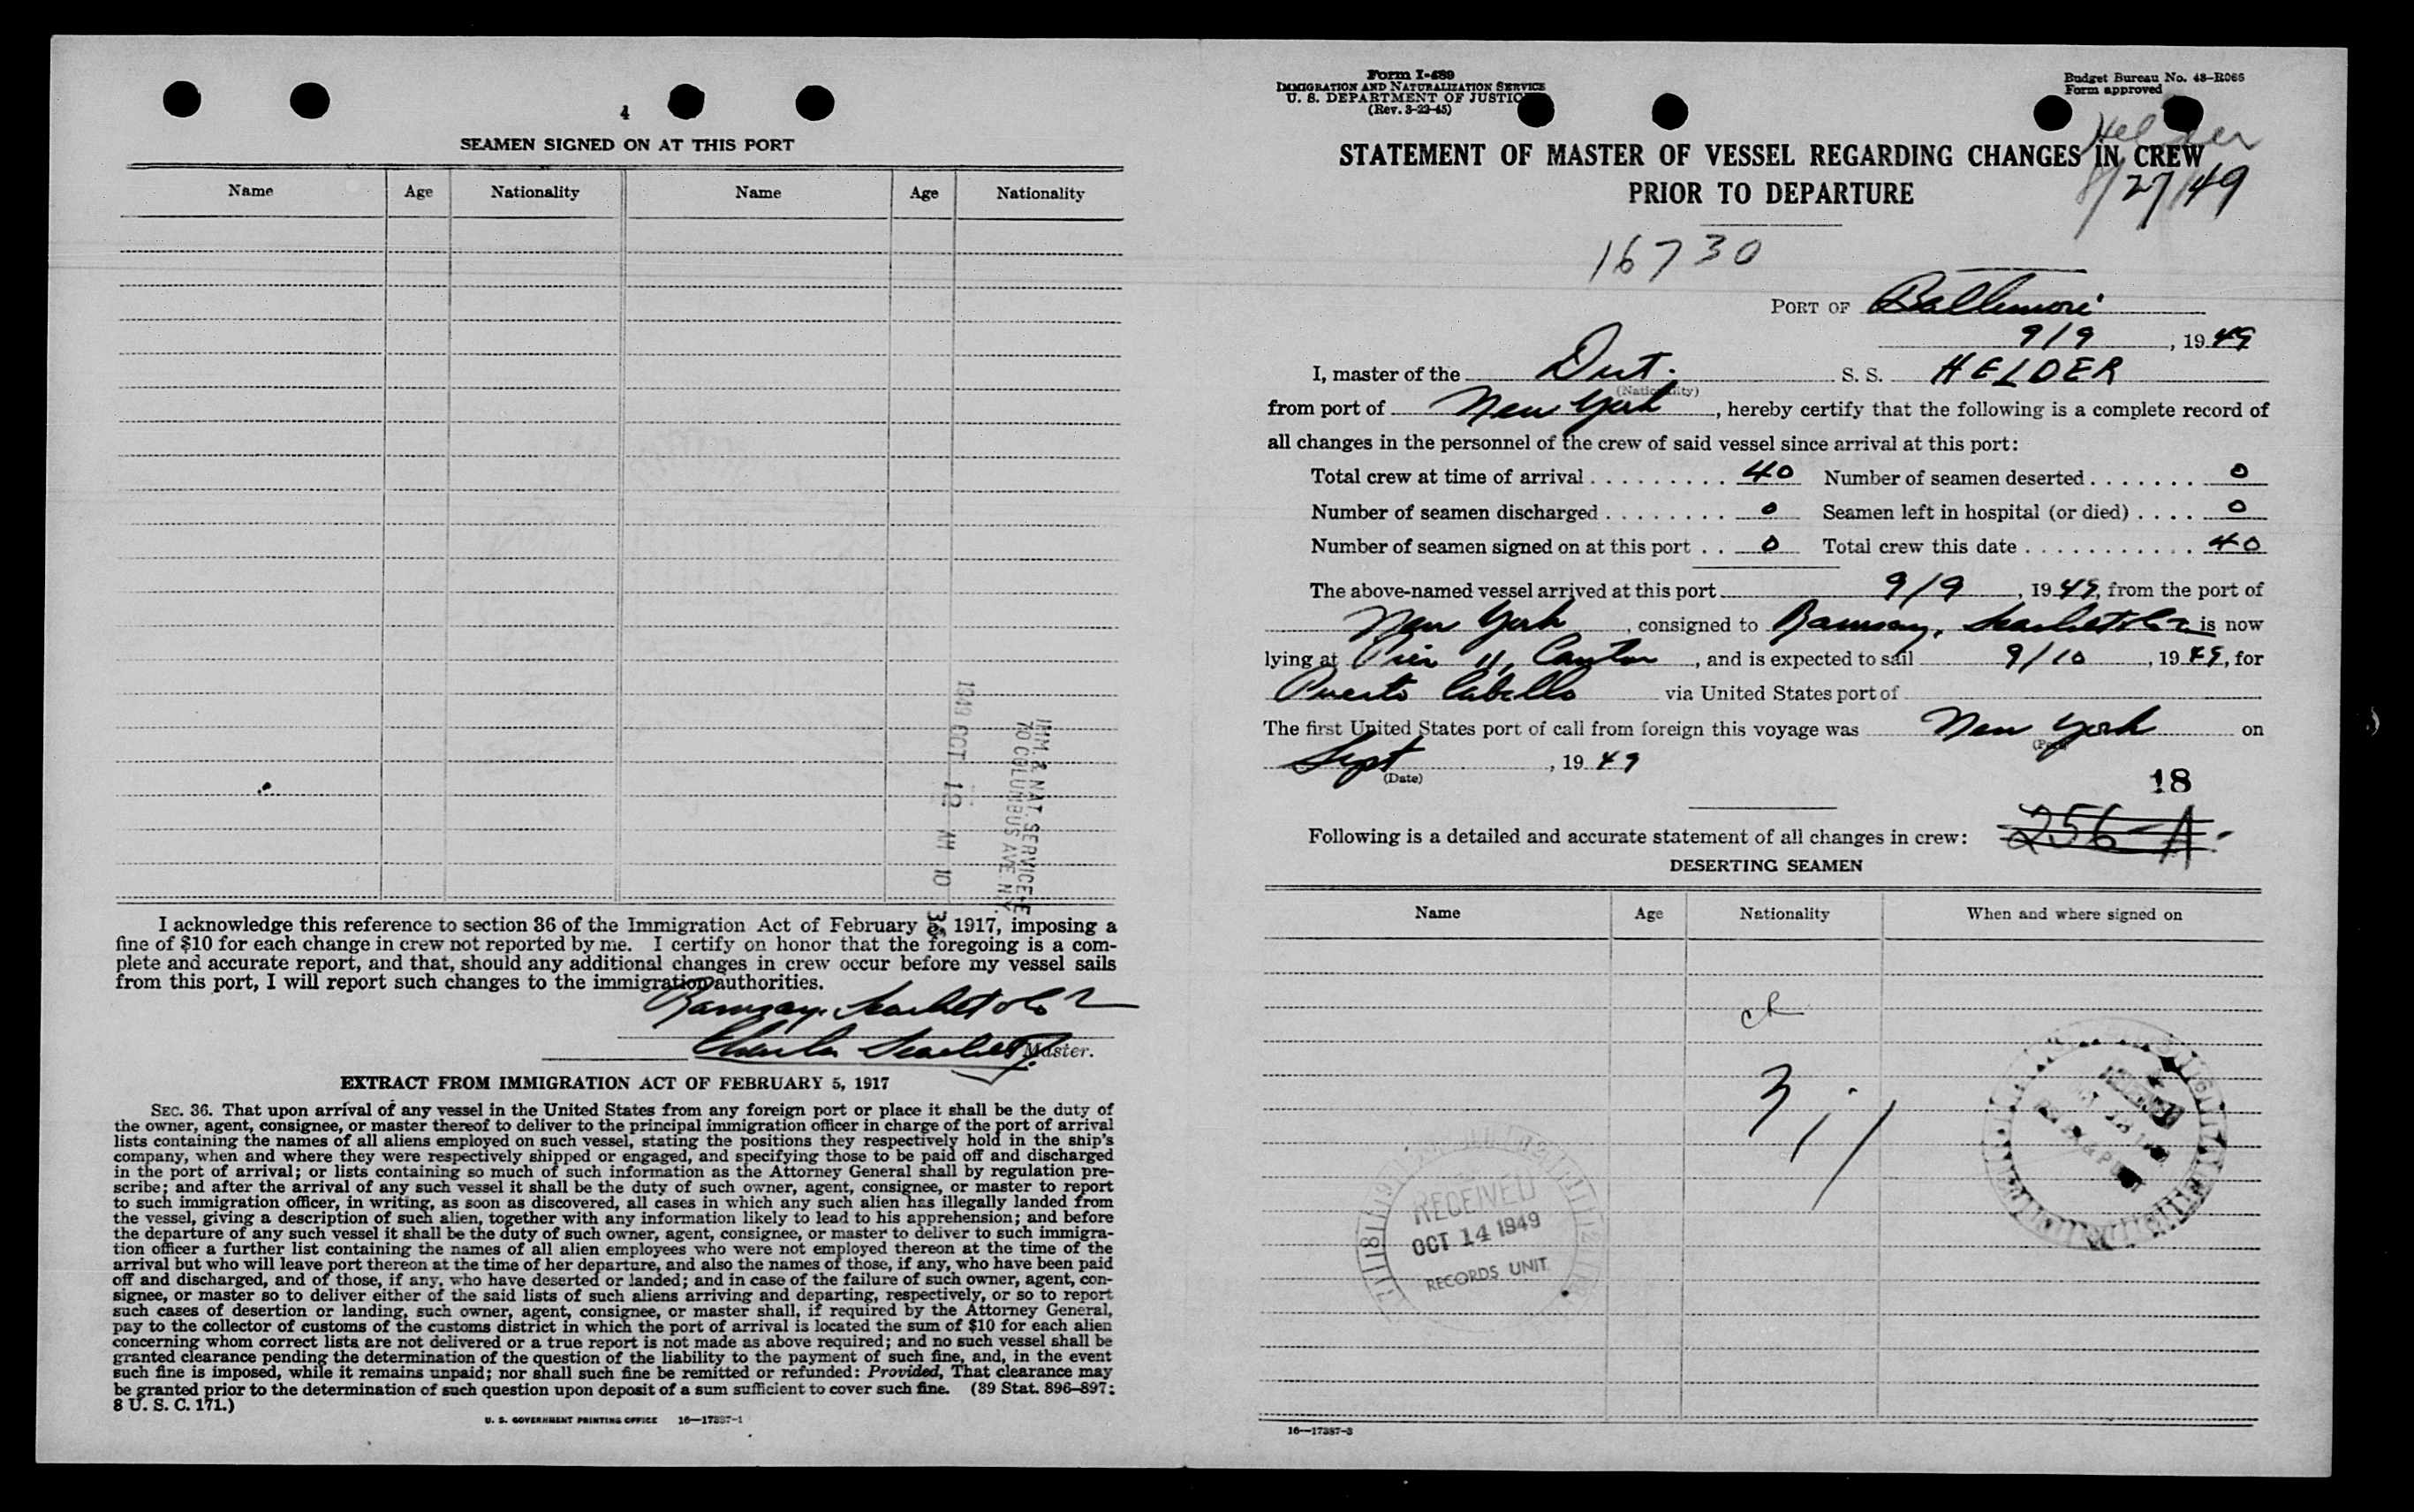 4
SEAMEN SIGNED ON AT THIS PORT
Name Age Nationality Name Age Nationality
IMM. & NAT. SERVICE
70 COLUMBUS AVE N.Y.
1949 OCT 12 AM 10
I acknowledge this reference to section 36 of the Immigration Act of February 5, 1917, imposing a
fine of $10 for each change in crew not reported by me. I certify on honor that the foregoing is a com-
plete and accurate report, and that, should any additional changes in crew occur before my vessel sails
from this port, I will report such changes to the immigration authorities.
Ramsay, Scarlett & Co
Charles Scarlett Jr. Master.
EXTRACT FROM IMMIGRATION ACT OF FEBRUARY 5, 1917
SEC. 36. That upon arrival of any vessel in the United States from any foreign port or place it shall be the duty of
the owner, agent, consignee, or master thereof to deliver to the principal immigration officer in charge of the port of arrival
lists containing the names of all aliens employed on such vessel, stating the positions they respectively hold in the ship's
company, when and where they were respectively shipped or engaged, and specifying those to be paid off and discharged
in the port of arrival; or lists containing so much of such information as the Attorney General shall by regulation pre-
scribe; and after the arrival of any such vessel it shall be the duty of such owner, agent, consignee, or master to report
to such immigration officer, in writing, as soon as discovered, all cases in which any such alien has illegally landed from
the vessel, giving a description of such alien, together with any information likely to lead to his apprehension; and before
the departure of any such vessel it shall be the duty of such owner, agent, consignee, or master to deliver to such immigra-
tion officer a further list containing the names of all alien employees who were not employed thereon at the time of the
arrival but who will leave port thereon at the time of her departure, and also the names of those, if any, who have been paid
off and discharged, and of those, if any, who have deserted or landed; and in case of the failure of such owner, agent, con-
signee, or master so to deliver either of the said lists of such aliens arriving and departing, respectively, or so to report
such cases of desertion or landing, such owner, agent, consignee, or master shall, if required by the Attorney General,
pay to the collector of customs of the customs district in which the port of arrival is located the sum of $10 for each alien
concerning whom correct lists are not delivered or a true report is not made as above required; and no such vessel shall be
granted clearance pending the determination of the question of the liability to the payment of such fine, and, in the event
such fine is imposed, while it remains unpaid; nor shall such fine be remitted or refunded: Provided, That clearance may
be granted prior to the determination of such question upon deposit of a sum sufficient to cover such fine. (39 Stat. 896–897;
8 U. S. C. 171.)
U. S. GOVERNMENT PRINTING OFFICE 16—17387-1
Form I-489
IMMIGRATION AND NATURALIZATION SERVICE
U. S. DEPARTMENT OF JUSTICE
(Rev. 3-22-45)
Budget Bureau No. 43-R066
Form approved
Helder
8/27/49
STATEMENT OF MASTER OF VESSEL REGARDING CHANGES IN CREW
PRIOR TO DEPARTURE
16730
PORT OF Baltimore
9/9, 1949
I, master of the Dut. S. S. HELDER
(Nationality)
from port of New York, hereby certify that the following is a complete record of
all changes in the personnel of the crew of said vessel since arrival at this port:
Total crew at time of arrival 40 Number of seamen deserted 0
Number of seamen discharged 0 Seamen left in hospital (or died) 0
Number of seamen signed on at this port 0 Total crew this date 40
The above-named vessel arrived at this port 9/9, 1949, from the port of
New York, consigned to Ramsay, Scarlett & Co is now
lying at Pier 11, Canton, and is expected to sail 9/10, 1949, for
Puerto Cabello via United States port of
The first United States port of call from foreign this voyage was New York on
(Port)
Sept, 1949
(Date)
18
Following is a detailed and accurate statement of all changes in crew: 256-A.
DESERTING SEAMEN
Name Age Nationality When and where signed on
RECEIVED
OCT 14 1949
RECORDS UNIT
16—17387-2